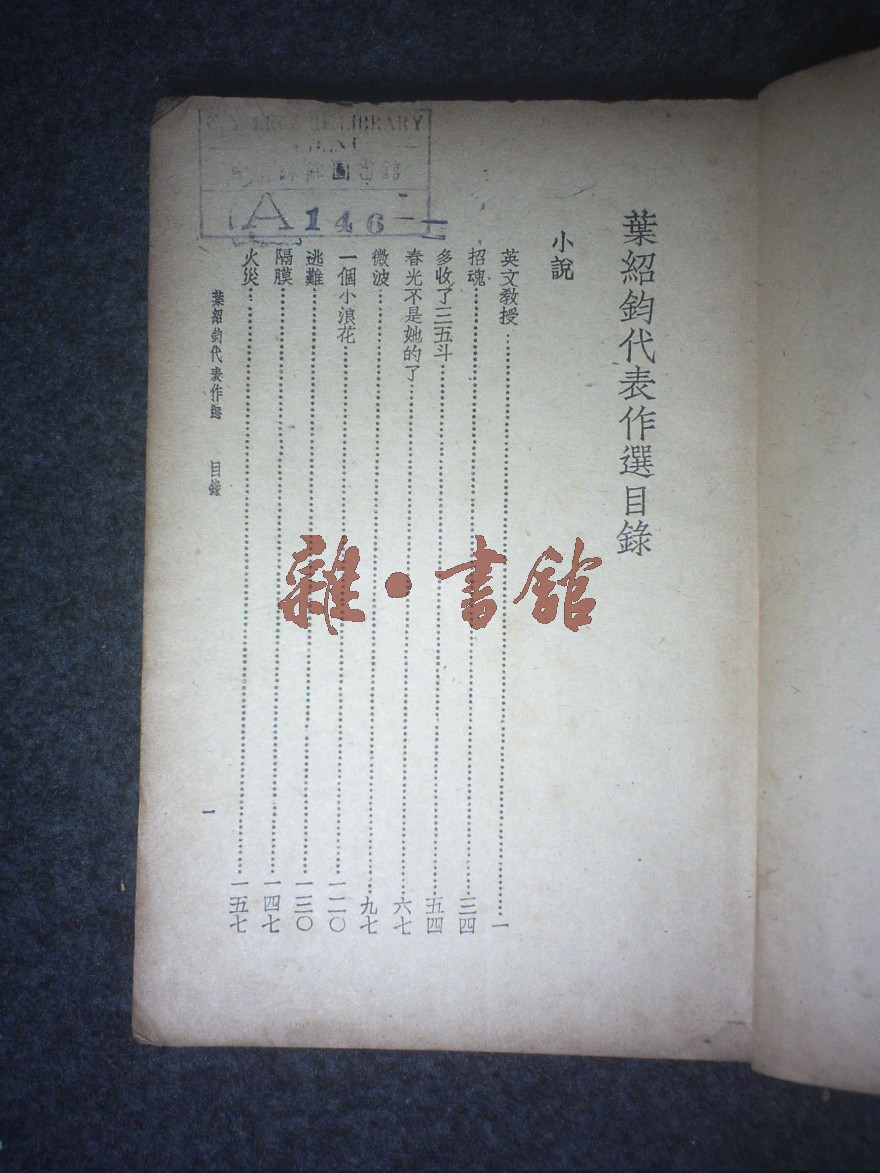 葉紹鈞代表作選目錄
小說
英文教授……一
招魂……三四
多收了三五斗……五四
春光不是她的了……六七
微波……九七
一個小浪花……一二〇
逃難……一三〇
隔膜……一四七
火災……一五七
葉紹鈞代表作選 目錄
一
LIBRARY
A146
雜·書館